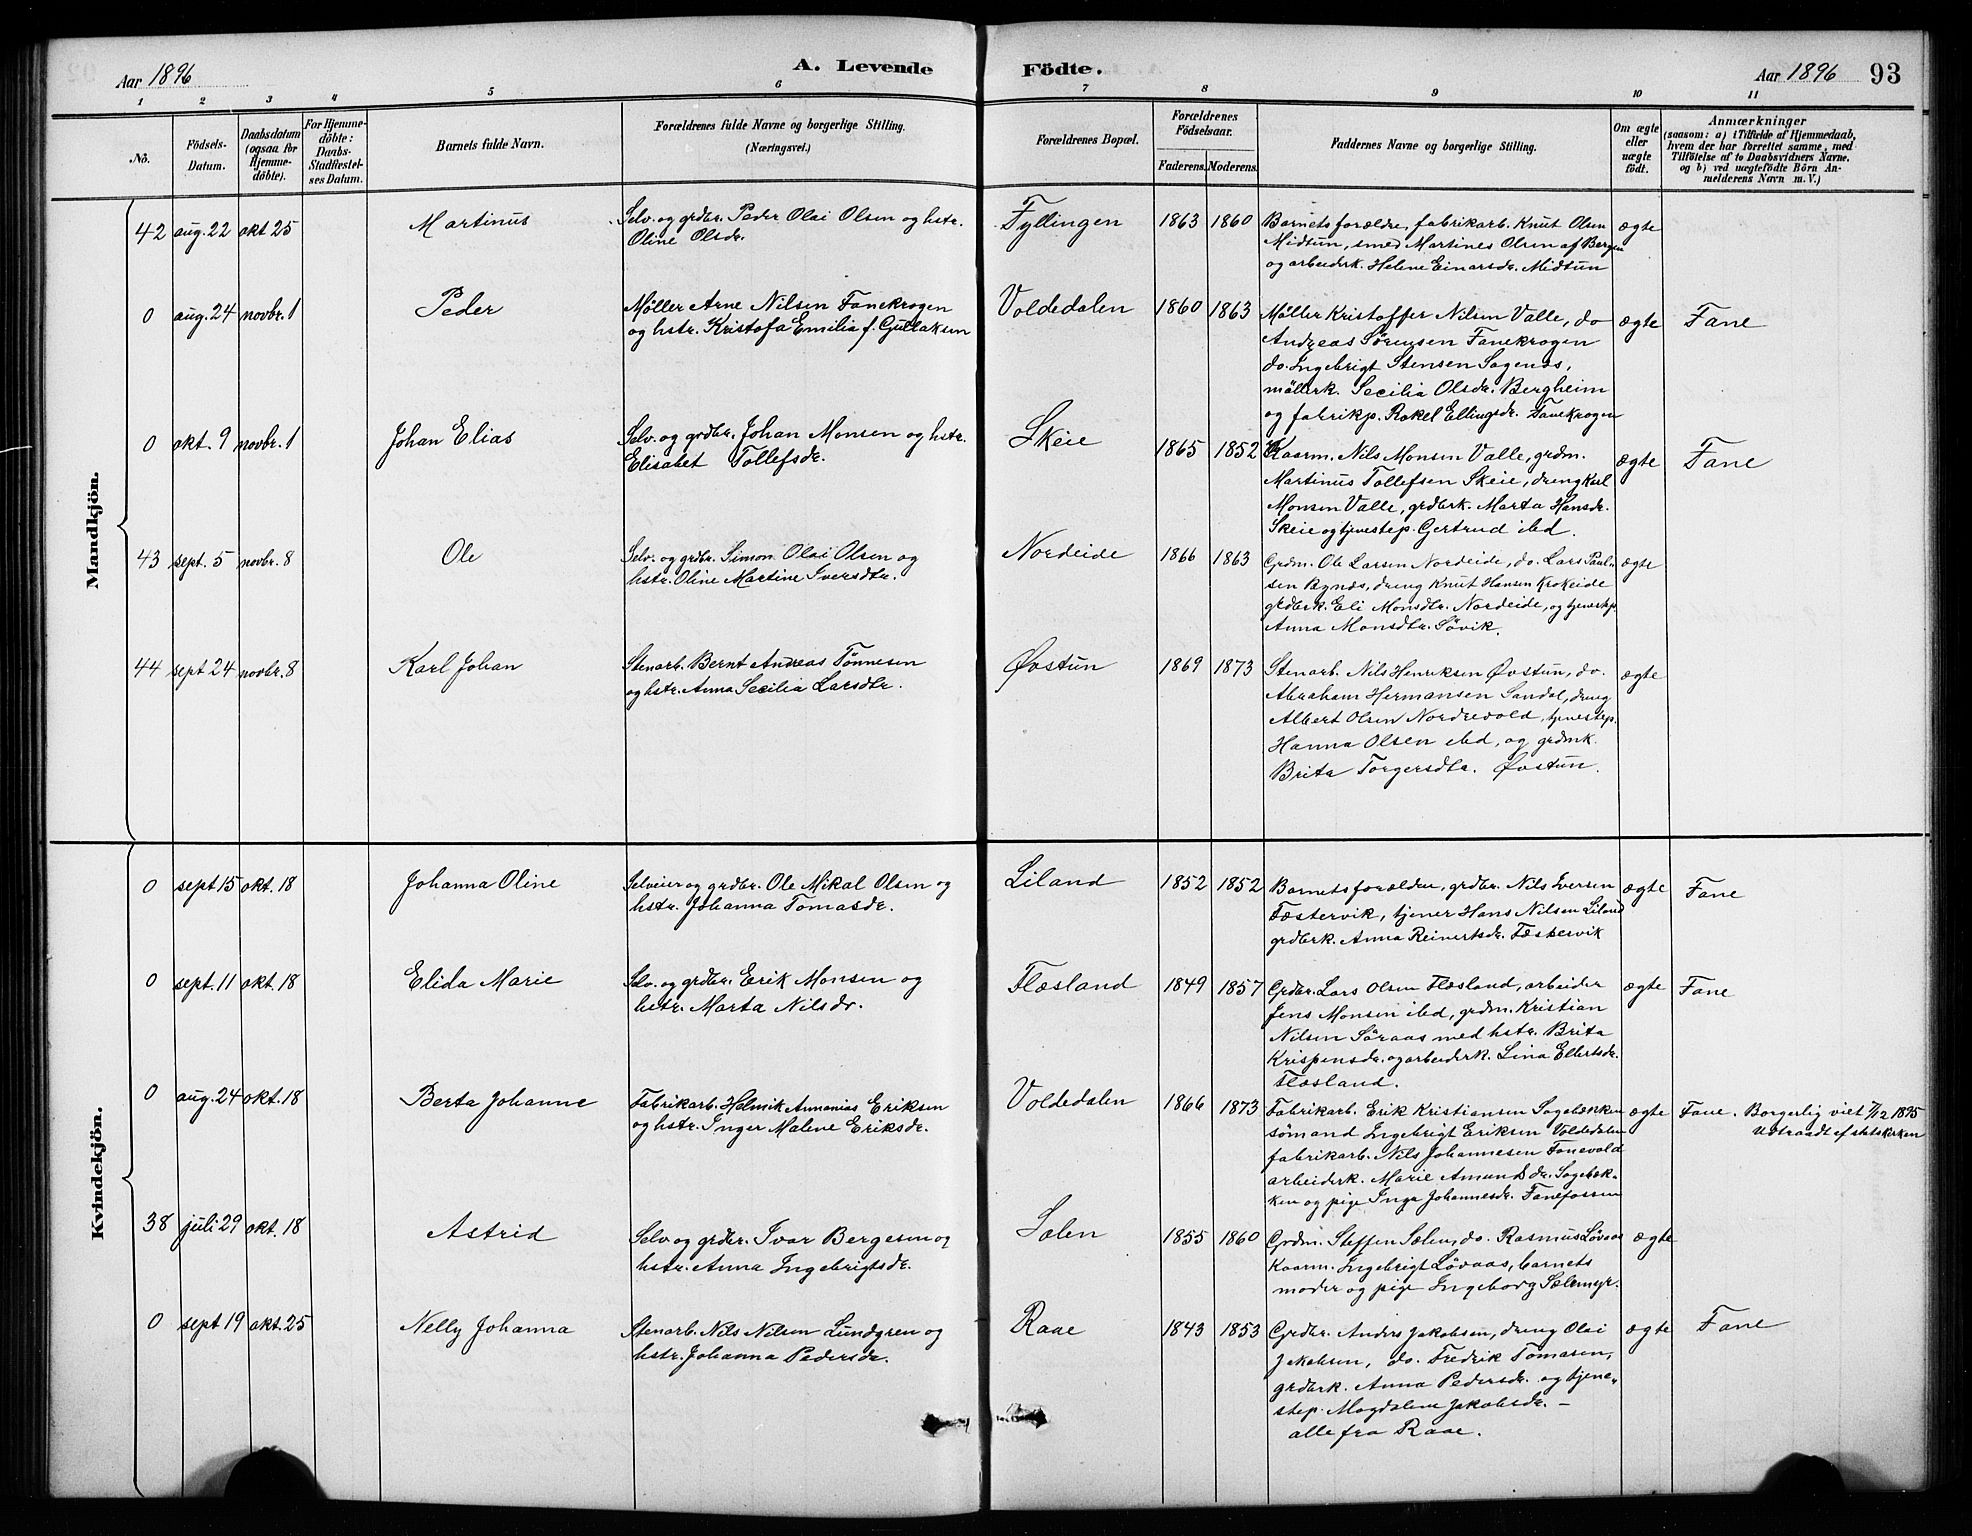 Aar 1896
A. Levende
Födte.
Aar 1896
93
1
2
3
4
5
6
7
8
9
10
11
No.
Födsels-
Datum.
Daabsdatum
(ogsaa for
Hjemme-
döbte).
For Hjemme-
döbte:
Daabs-
Stadfæstel-
ses Datum.
Barnets fulde Navn.
Forældrenes fulde Navne og borgerlige Stilling.
(Næringsvei.)
Forældrenes Bopæl.
Forældrenes
Födselsaar.
Faderens.
Moderens.
Faddernes Navne og borgerlige Stilling.
Om ægte
eller
uægte
födt.
Anmærkninger
(saasom: a) i Tilfælde af Hjemmedaab,
hvem der har forrettet samme, med
Tilföielse af to Daabsvidners Navne,
og b) ved uægtefödte Börn An-
melderens Navn m. V.)
Mandkjön.
42 aug. 22 okt 25
Martinus
Selv. og grdbr. Peder Olai Olsen og hstr.
Oline Olsdr.
Fyllingen
1863 1860
Barnets forældre, fabrikarb. Knut Olsen
Midtun, smed Martines Olsen af Bergen
og arbeiderk. Helene Einarsdr. Midtun
ægte
0 aug. 24 novbr. 1
Peder
Møller Arne Nilsen Fanekrogen
og hstr. Kristofa Emilia f. Gullaksen
Voldedalen
1860 1863
Møller Kristoffer Nilsen Valle, do
Andreas Sørensen Fanekrogen
do. Ingebrigt Stensen Sagenæs,
møllerk. Secilia Olsdr. Bergheim
og fabrikp. Rakel Ellingsdr. Fanekrogen
ægte
Fane
0 okt. 9 novbr. 1
Johan Elias
Selv. og grdbr. Johan Monsen og hstr.
Elisabet Tollefsdr.
Skeie
1865 1852
Kaarm. Nils Monsen Valle, grdm.
Martinus Tollefsen Skeie, dreng Karl
Monsen Valle, grdbrk. Marta Hansdr.
Skeie og tjenestep. Gertrud ibd.
ægte
Fane
43 sept. 5 novbr. 8
Ole
Selv. og grdbr. Simon Olai Olsen og
hstr. Oline Martine Iversdtr.
Nordeide
1866 1863
Grdm. Ole Larsen Nordeide, do. Lars Paul-
sen Bynæs, dreng Knut Hansen Krokeide
grdbrk. Eli Monsdtr. Nordeide, og tjenestep.
Anna Monsdtr. Søvik.
ægte
44 sept 24 novbr. 8
Karl Johan
Stenarb. Bernt Andreas Tønnesen
og hstr. Anna Secilia Larsdtr.
Øvstun
1869 1873
Stenarb. Nils Henriksen Øvstun, do.
Abraham Hermansen Sandal, dreng
Albert Olsen Nordrevold, tjenestep.
Hanna Olsen ibd, og grdmk.
Brita Torgersdtr. Øvstun.
ægte
Kvindekjön.
0 sept. 15 okt. 18
Johanna Oline
Selveier og grdbr. Ole Mikal Olsen og
hstr. Johanna Tomasdr.
Liland
1852 1852
Barnets forældre, grdbr. Nils Iversen
Fæstervik, tjener Hans Nilsen Liland
grdbrk. Anna Reinertsdr. Fæstervik
ægte
Fane
0 sept. 11 okt. 18
Elida Marie
Selv. og grdbr. Erik Monsen og
hstr. Marta Nilsdr.
Flæsland
1849 1857
Grdbr. Lars Olsen Flæsland, arbeider
Jens Monsen ibd, grdm. Kristian
Nilsen Søraas med hstr. Brita
Krispensdr. og arbeiderk. Lina Ellertsdr.
Flæsland.
ægte
Fane
0 aug. 24 okt. 18
Berta Johanne
Fabrikarb. Helmik Annanias Eriksen
og hstr. Inger Malene Eriksdr.
Voldedalen
1866 1873
Fabrikarb. Erik Kristiansen Sagebækken
sömand Ingebrigt Eriksen Voldedalen
fabrikarb. Nils Johannesen Fanevold
arbeiderk. Marie Amundsdr. Sagebæk-
ken og pige Inga Johannesdr. Fanefossen
ægte
Fane. Borgerlig viet 7/12 1895
Udtraadt af statskirken
38 juli 29 okt. 18
Astrid
Selv. og grdbr. Ivar Bergesen og
hstr. Anna Ingebrigtsdr.
Sælen
1855 1860
Grdm. Steffen Sælen, do. Rasmus Løvaas
Kaarm. Ingebrigt Løvaas, barnets
moder og pige Ingeborg Sælemyr.
ægte
0 sept 19 okt. 25
Nelly Johanna
Stenarb. Nils Nilsen Lundgren og
hstr. Johanna Pedersdr.
Raae
1843 1853
Grdbr. Anders Jakobsen, dreng Olai
Jakobsen, do. Fredrik Tomasen,
grdbrk. Anna Pedersdr. og tjene-
step. Magdalena Jakobsdr. –
alle fra Raae.
ægte
Fane